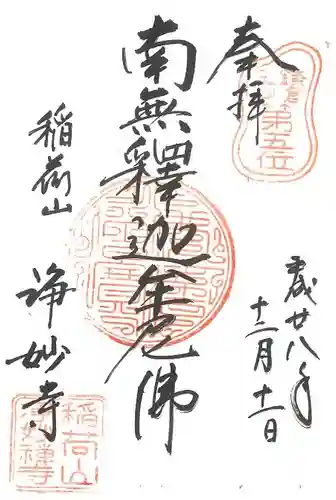 奉拝
鎌倉
第五位
平成廿八年
十二月十一日
南無釋迦牟尼佛
稲荷山
浄妙寺
稲荷山
浄妙禅寺